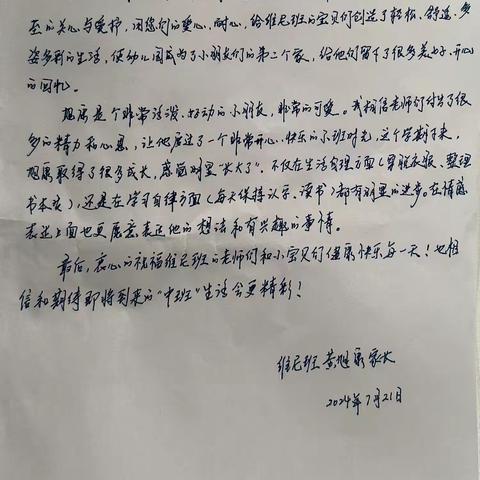 至的关心与爱护，因您们的爱心、耐心，给维尼班的宝贝们创造了轻松、舒适、多
姿多彩的生活，使幼儿园成为了小朋友们的第二个家，给他们留下了很多美好、开心
的回忆。
是个非常活泼、好动的小朋友，非常的可爱。我相信老师们付出了很
多的精力和心思，让他度过了一个非常开心、快乐的小班时光，这个学期下来，
取得了很多成长，感觉到里"长大了"。不仅在生活自理方面（穿脱衣服、整理
书本等），还是在学习自律方面（每天保持认字、读书）都有明显的进步。在情感
表达上面也更愿意表达他的想法和有兴趣的事情。
最后，衷心的祝福维尼班的老师们和小宝贝们健康快乐每一天！也相
信和期待即将到来的"中班"生活会更精彩！
维尼班 黄旭 家长
2024年7月21日